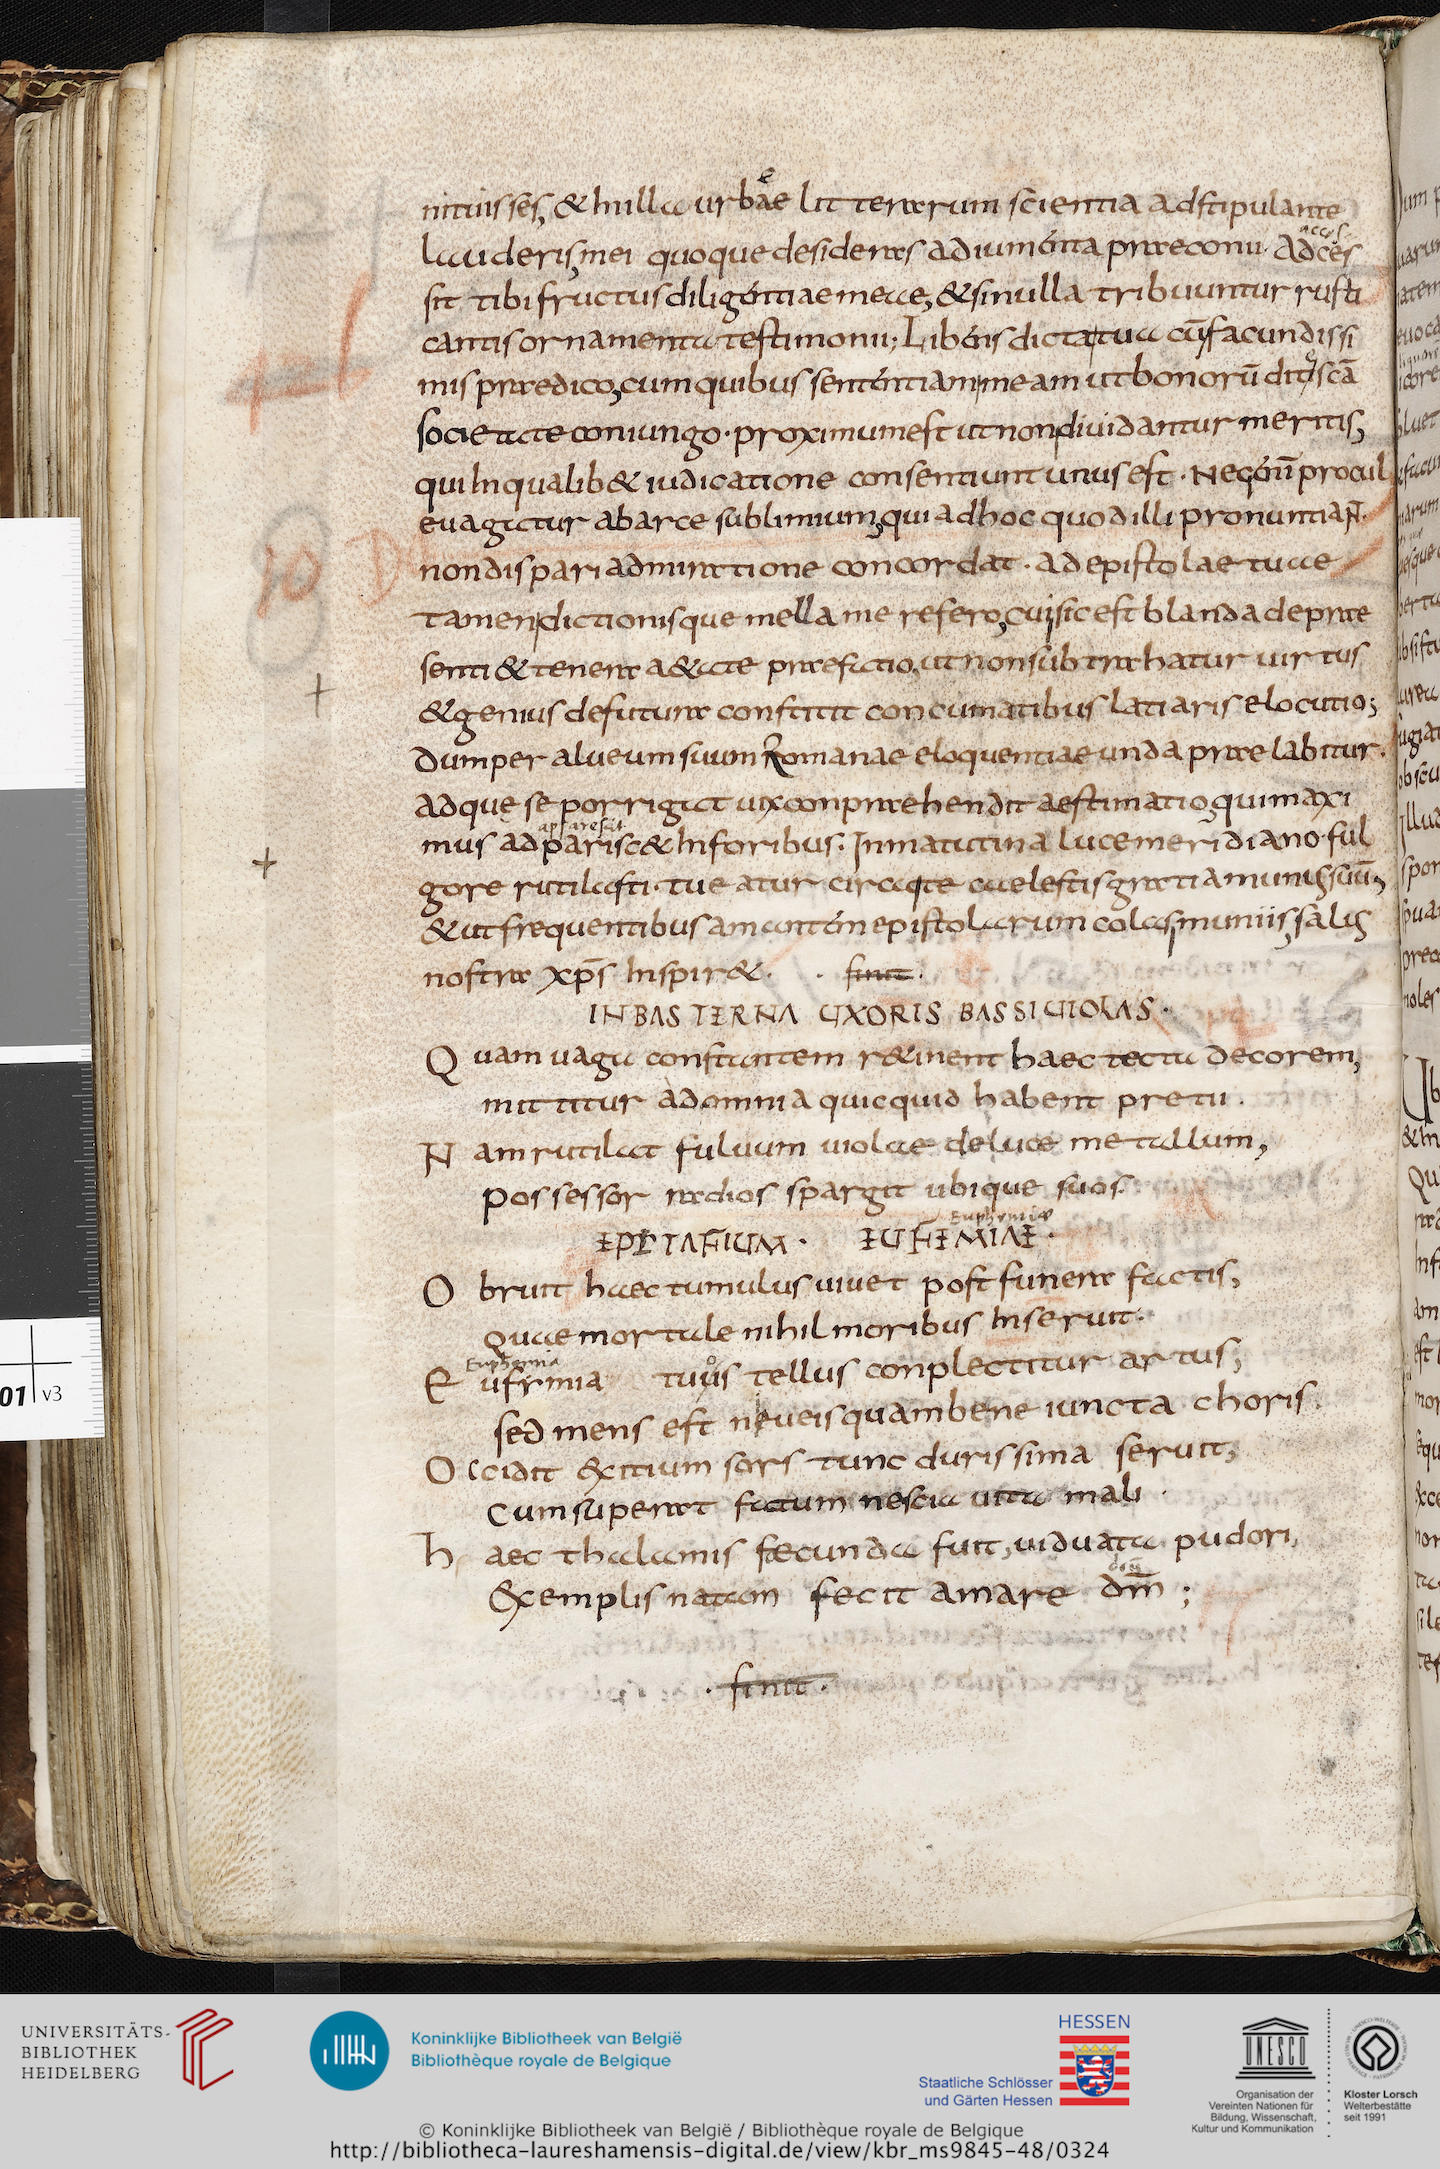 nituisses, & nulla urbae litterarum scientia adstipulante
lauderis, mei quoque desideras adiumenta praeconii. Adces
sit tibi fructus diligentiae meae, & si nulla tribuuntur rusti
cantis ornamenta testimonii; Libens dictatua cū facundissi
mis praedico, cum quibus sententiam meam ut bonorū
societate coniungo. proximum est ut non diuidantur meritis,
qui In qualib& iudicatione consentiunt unus est. Nec procul
euagatur ab arce sublimium, qui ad hoc quod illi pronuntiaɴ̄.
non dispari admiratione concordat. ad epistolae tuae
tamen dictionisque mella me refero, cui sic est blanda de prae
senti & tenera aetate praefatio, ut non subtrahatur uirtus
& genius de futura constitit concumatibus latiaris elocutio;
Dum per alueum suum Romanae eloquentiae unda praelabitur.
adque se porrigit uix conpraehendit aestimatio, qui maxi
apparescit
mus ad parisc& In foribus. In matutina luce meridiano ful
gore rutilasti. tueatur circa te caelestis gratia munus suū,
& ut frequentibus amantem epistolarum colas muniis, salus
nostra xp̄s Inspir&. . finit.
IN BASTERNA UXORIS BASSI UIOLAS.
Quam uaga constantem r&inent haec tecta decorem,
mittitur a domina quicquid habent pretii.
Nam rutilat fuluum uiolae de luce metallum,
possessor radios spargit ubique suos.
Euphemiae
EPETAFIUM. EUFEMIAE.
Obruit haec tumulus uiuet post funera factis,
quae mortale nihil moribus Inseruit.
Euphemia
Eufimia tuus tellus conplectitur artus,
sed mens est niueis quam bene iuncta choris
Occidit exitium sors tunc durissima seruit,
Cum superat fatum nescia uita mali.
haec thalamis fecunda fuit, uiduata pudori,
Exemplis natam fecit amare dm̄;
. finit.
01 v3
UNIVERSITÄTS-
BIBLIOTHEK
HEIDELBERG
Koninklijke Bibliotheek van België
Bibliothèque royale de Belgique
HESSEN
Staatliche Schlösser
und Gärten Hessen
UNESCO
Organisation der
Vereinten Nationen für
Bildung, Wissenschaft,
Kultur und Kommunikation
Kloster Lorsch
Welterbestätte
seit 1991
© Koninklijke Bibliotheek van België / Bibliothèque royale de Belgique
http://bibliotheca-laureshamensis-digital.de/view/kbr_ms9845-48/0324